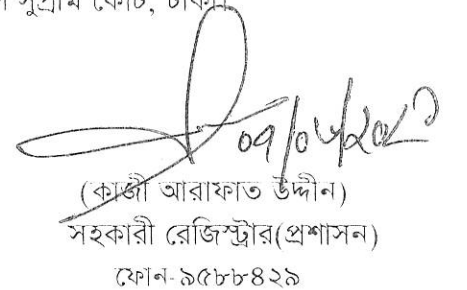 সুপ্রীম কোর্ট, ঢাকা।
(কাজী আরাফাত উদ্দীন)
সহকারী রেজিস্ট্রার(প্রশাসন)
ফোন-৯৫৮৮৪২৯